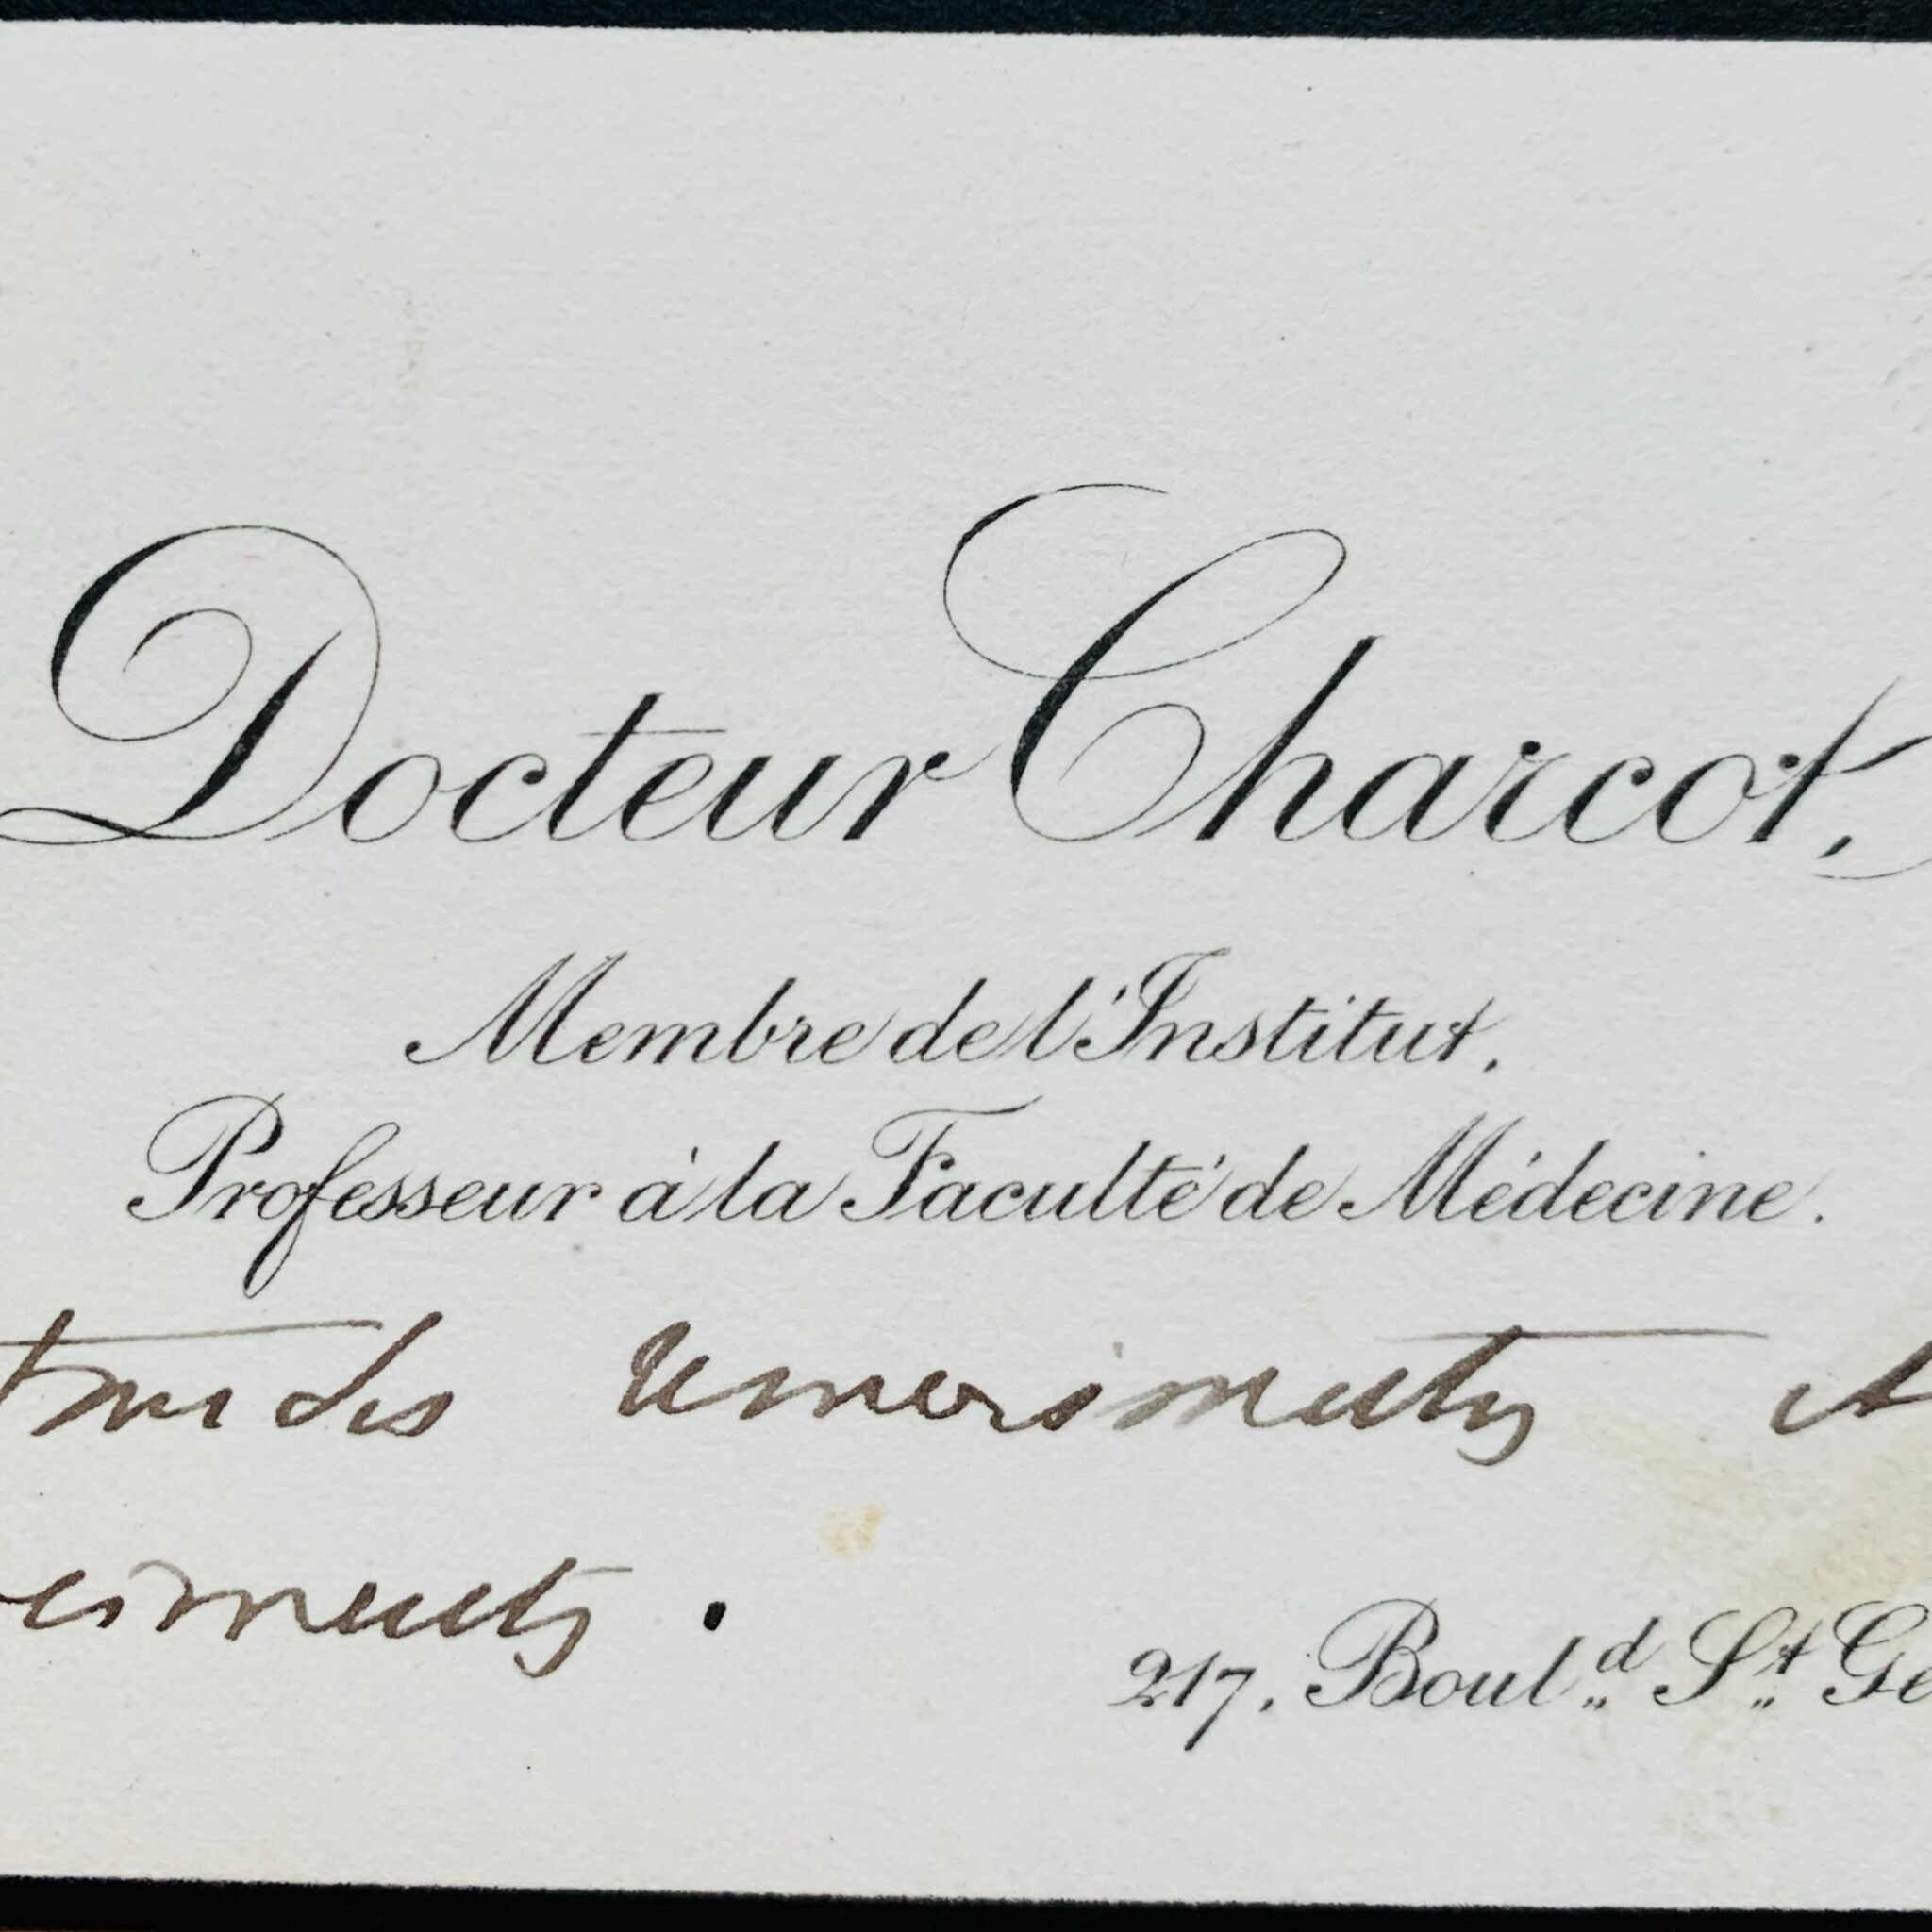 Docteur Charcot,
Membre de l'Institut.
Professeur à la Faculté de Médecine.
remerciments et
217, Boul.d St. Ge